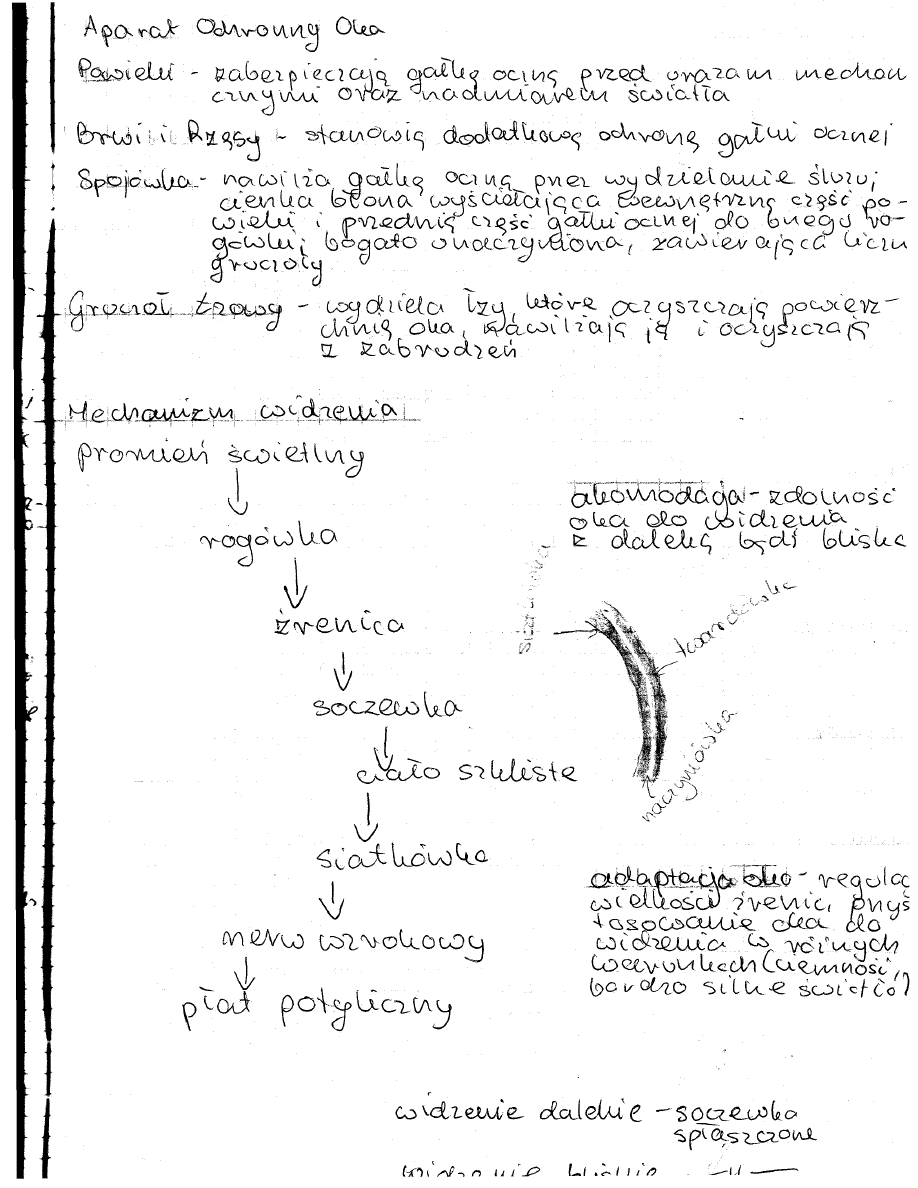 Aparat Ochronny Oka
Powieki - zabezpieczają gałkę oczną przed urazam mechan
cznymi oraz nadmiarem światła
Brwi i Rzęsy - stanowią dodatkową ochronę gałki ocznej
Spojówka - nawilża gałkę oczną przez wydzielanie śluzu;
cienka błona wyściełająca wewnętrzną część po-
wieki i przednią część gałki ocznej do brzegu ro-
gówki; bogato unaczyniona, zawierająca liczn
gruczoły
Gruczoł łzowy - wydziela łzy, które oczyszczają powierz-
chnię oka, nawilżają ją i oczyszczają
z zabrudzeń
Mechanizm widzenia
promień świetlny
akomodacja - zdolność
oka do widzenia
z daleka bądź bliska
rogówka
siatkówka
twardówka
źrenica
soczewka
naczyniówka
ciało szkliste
siatkówka
adaptacja oka - regulac
wielkości źrenic, przys
tosowanie oka do
widzenia w różnych
warunkach (ciemność,
bardzo silne światło)
nerw wzrokowy
płat potyliczny
widzenie dalekie - soczewka
spłaszczone
widzenie bliskie -"-